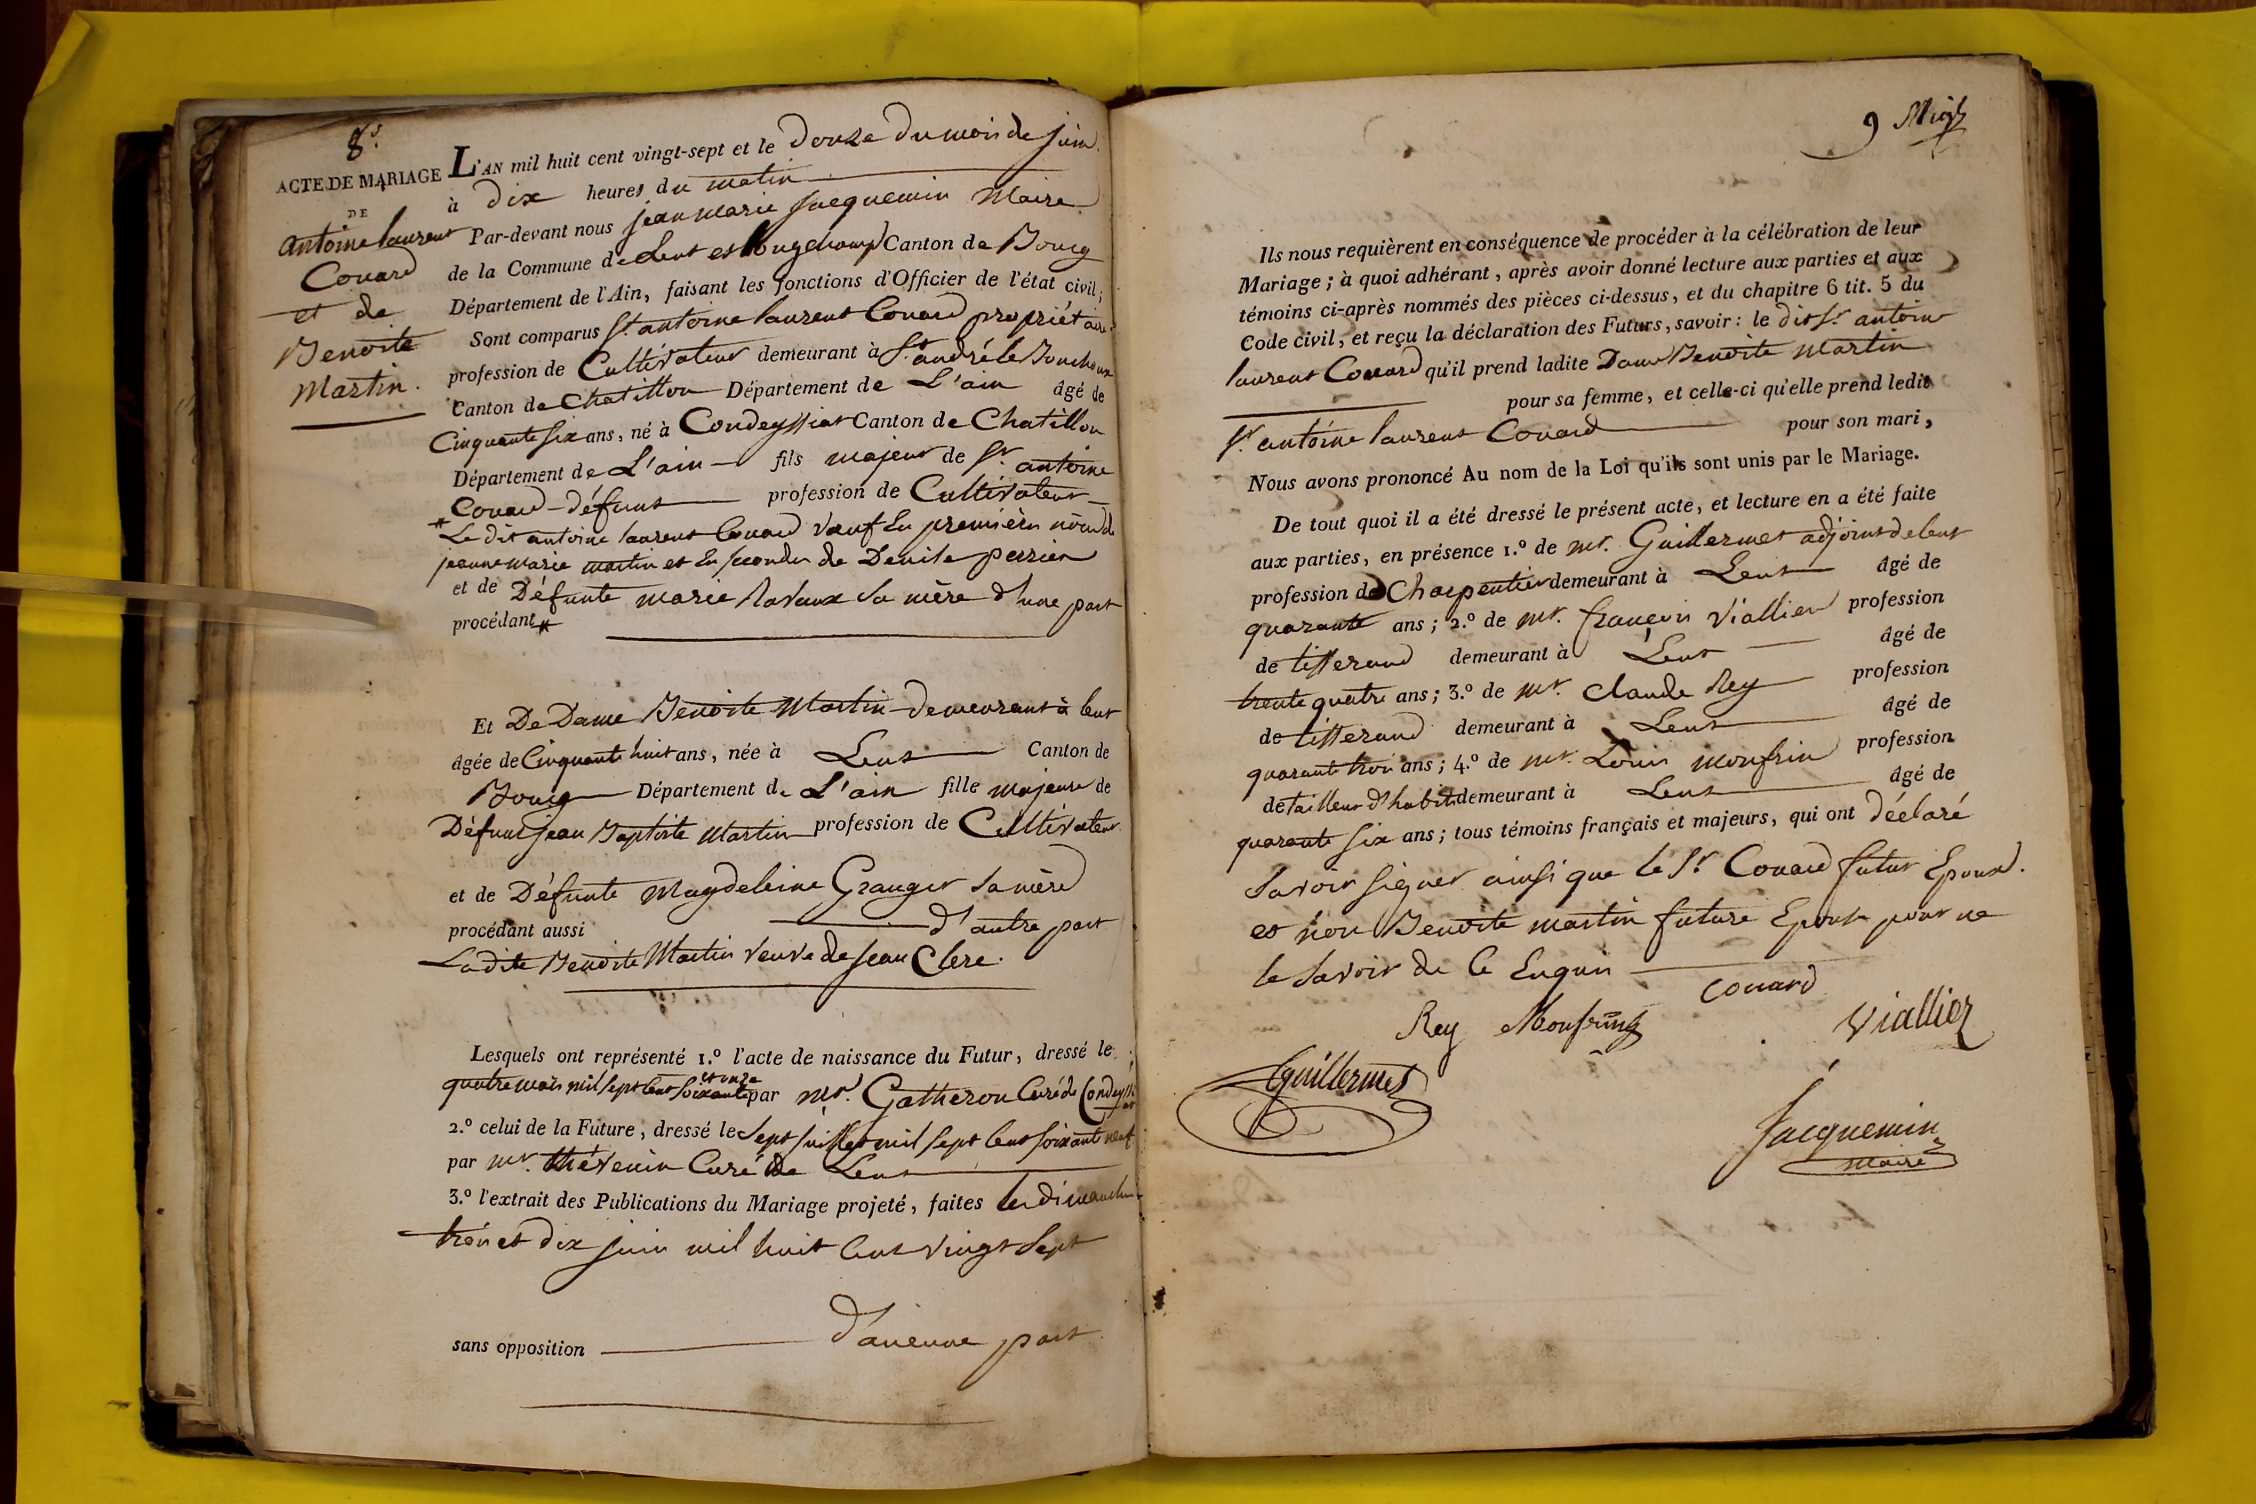 8.e
ACTE DE MARIAGE
DE
antoine laurent
Couard
et de
Benoite
Martin.
L'AN mil huit cent vingt-sept et le Douze Du mois de juin
à dix heures du matin
Par-devant nous jean marie jacquemin Maire
de la Commune de Lent et longchamp Canton de Bourg
Département de l'Ain, faisant les fonctions d'Officier de l'état civil;
Sont comparus Sr. antoine laurent Couard propriétaire
profession de Cultivateur demeurant à St. andré le Bouchoux
Canton de Chatillon Département de L'ain âgé de
Cinquante six ans, né à Condeyssiat Canton de Chatillon
Département de L'ain fils majeur de Sr. antoine
Couard défunt profession de Cultivateur
* Le dit antoine laurent Couard veuf En premières nôces de
jeanne marie martin et En secondes de Denise perrier
et de Défunte marie Ravaux sa mère d'une part
procédant *
Et De Dame Benoite Martin demeurant à lent
âgée de Cinquante huit ans, née à Lent Canton de
Bourg Département de L'ain fille majeure de
Défunt jean Baptiste Martin profession de Cultivateur
et de Défunte Magdeleine Granger sa mère
procédant aussi d'autre part
La dite Benoite Martin veuve de jean Clerc.
Lesquels ont représenté 1.º l'acte de naissance du Futur, dressé le
quatre mars mil sept cent soixante et onze par mr. Gatheron Curé de Condeyssiat
2.º celui de la Future, dressé le sept juillet mil sept cent soixante neuf
par mr. thévenin Curé de Lent
3.º l'extrait des Publications du Mariage projeté, faites les dimanches
trois et dix juin mil huit cent vingt sept
sans opposition d'aucune part
9
Ils nous requièrent en conséquence de procéder à la célébration de leur
Mariage; à quoi adhérant, après avoir donné lecture aux parties et aux
témoins ci-après nommés des pièces ci-dessus, et du chapitre 6 tit. 5 du
Code civil, et reçu la déclaration des Futurs, savoir: le dit sr. antoine
laurent Couard qu'il prend ladite Dame Benoite Martin
pour sa femme, et celle-ci qu'elle prend ledit
sr. antoine laurent Couard pour son mari,
Nous avons prononcé Au nom de la Loi qu'ils sont unis par le Mariage.
De tout quoi il a été dressé le présent acte, et lecture en a été faite
aux parties, en présence 1.º de mr. Guillermet adjoint de lent
profession de Charpentier demeurant à Lent âgé de
quarante ans; 2.º de mr. françois Viallier profession
de tisserand demeurant à Lent âgé de
trente quatre ans; 3.º de mr. claude Rey profession
de tisserand demeurant à Lent âgé de
quarante trois ans; 4.º de mr. Louis monfrin profession
de tailleur d'habits demeurant à Lent âgé de
quarante six ans; tous témoins français et majeurs, qui ont déclaré
savoir signer ainsi que le Sr. Couard futur Epoux.
et non Benoite martin future Epouse pour ne
le savoir de ce Enquis
couard
Rey Monfrin Viallier
Guillermet
Jacquemin
maire